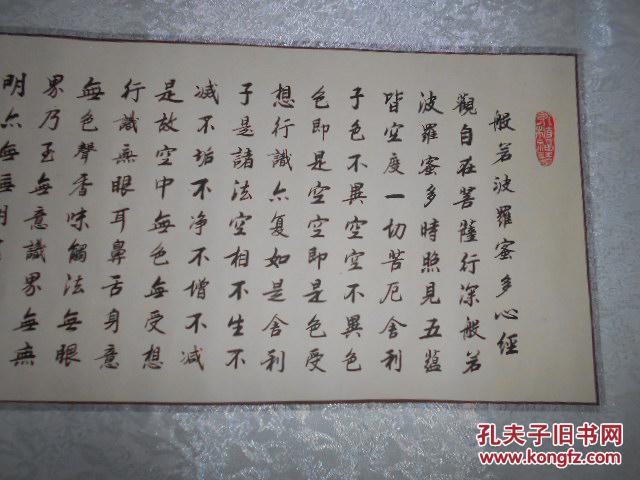 般若波羅蜜多心經
觀自在菩薩行深般若
波羅蜜多時照見五蕴
皆空度一切苦厄舍利
子色不異空空不異色
色即是空空即是色受
想行識亦复如是舍利
子是諸法空相不生不
滅不垢不净不增不减
是故空中無色無受想
行識無眼耳鼻舌身意
無色聲香味觸法無眼
界乃至無意識界無無
明亦無無明
孔夫子旧书网
www.kongfz.com